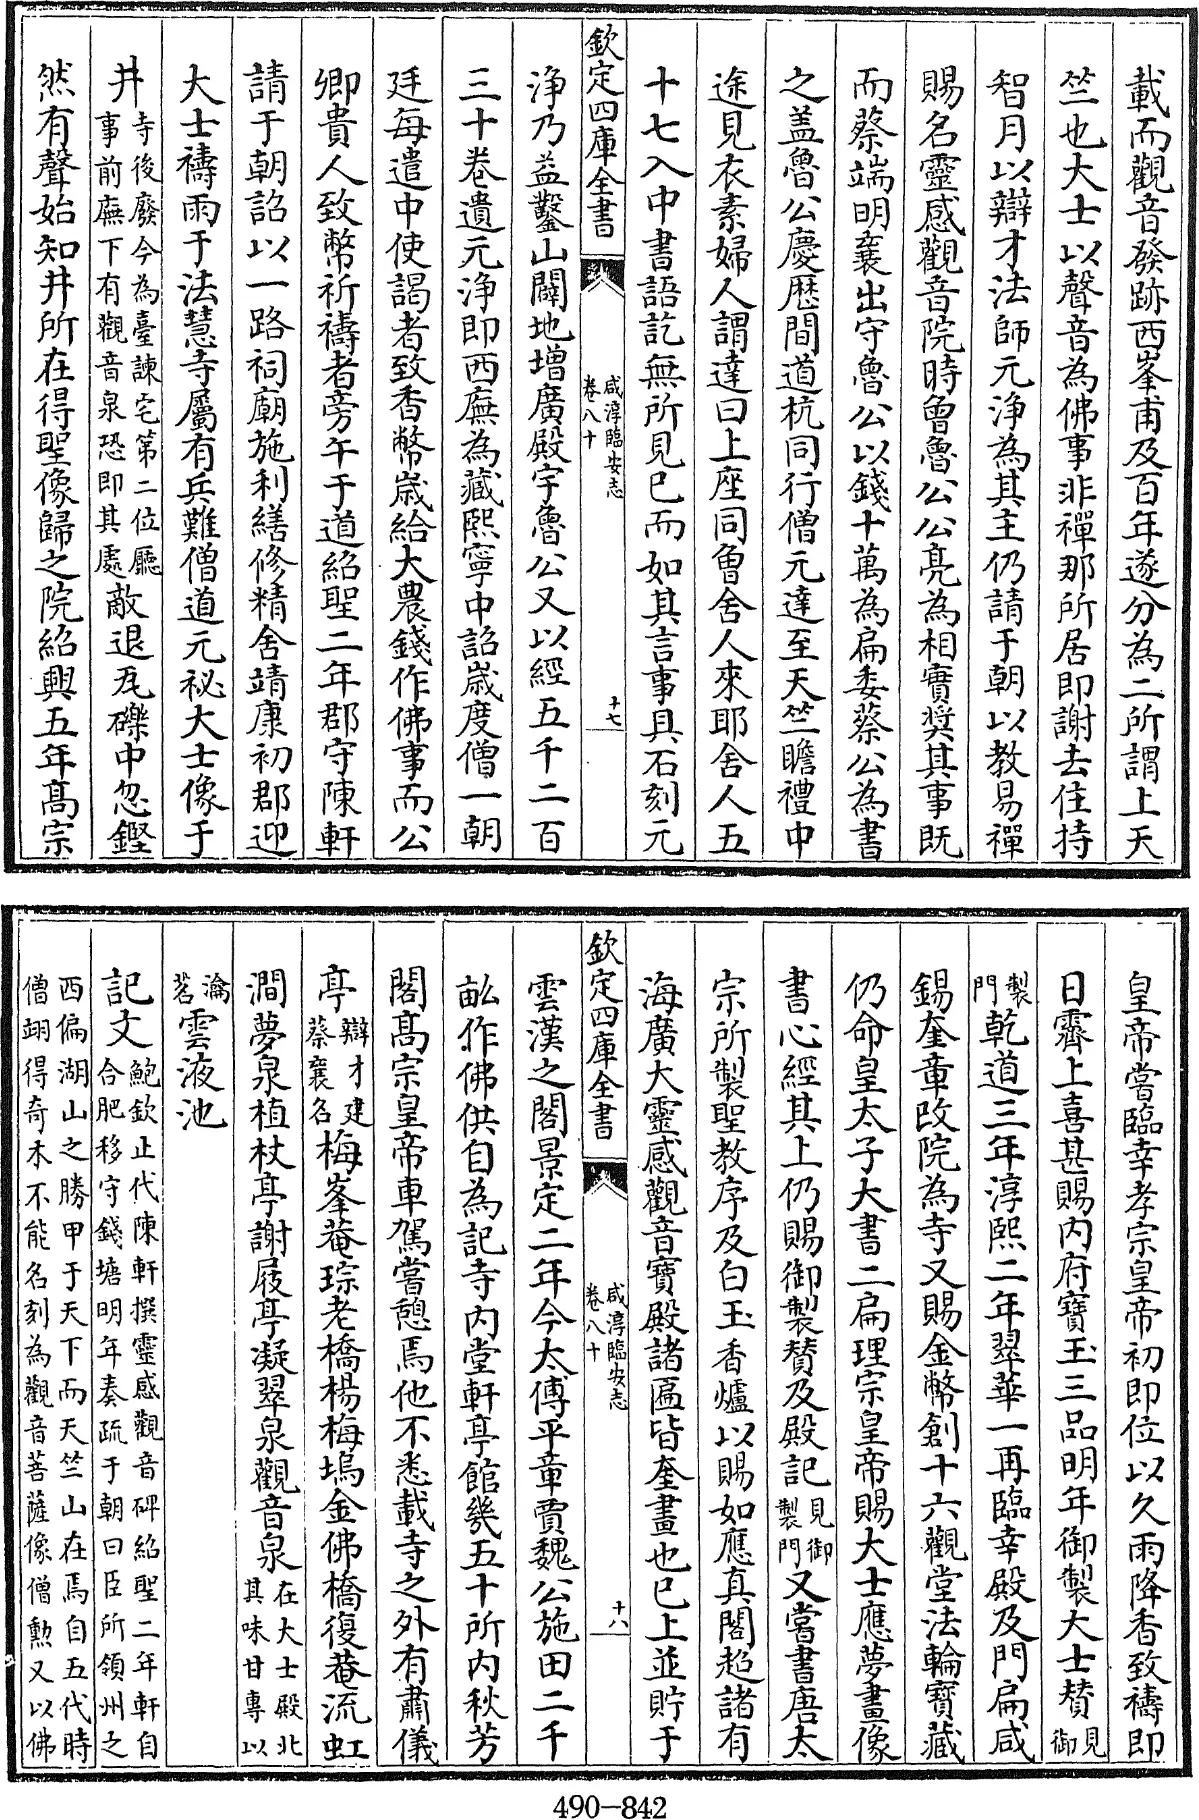 載而觀音發跡西峯甫及百年遂分為二所謂上天
竺也大士以聲音為佛事非禪那所居即謝去住持
智月以辯才法師元淨為其主仍請于朝以教易禪
賜名靈感觀音院時曾魯公公亮為相實奨其事既
而蔡端明襄出守魯公以錢十萬為扁委蔡公為書
之盖魯公慶歴間道杭同行僧元達至天竺瞻禮中
途見衣素婦人謂達曰上座同曾舍人來耶舍人五
十七入中書語訖無所見已而如其言事具石刻元
欽定四庫全書
咸淳臨安志
卷八十
十七
淨乃益鑿山闢地增廣殿宇魯公又以經五千二百
三十卷遺元淨即西廡為藏熙寧中詔歳度僧一朝
廷每遣中使謁者致香幣歳給大農錢作佛事而公
卿貴人致幣祈禱者旁午于道紹聖二年郡守陳軒
請于朝詔以一路祠廟施利繕修精舍靖康初郡迎
大士禱雨于法慧寺屬有兵難僧道元祕大士像于
井寺後廢今為臺諫宅第二位廳
事前廡下有觀音泉恐即其處敵退瓦礫中忽鏗
然有聲始知井所在得聖像歸之院紹興五年髙宗
皇帝嘗臨幸孝宗皇帝初即位以久雨降香致禱即
日霽上喜甚賜内府寶玉三品明年御製大士賛見
御
製
門乾道三年淳熙二年翠華一再臨幸殿及門扁咸
錫奎章改院為寺又賜金幣創十六觀堂法輪寶藏
仍命皇太子大書二扁理宗皇帝賜大士應夢畫像
書心經其上仍賜御製賛及殿記見御
製門又嘗書唐太
宗所製聖教序及白玉香爐以賜如應真閣超諸有
海廣大靈感觀音寶殿諸匾皆奎畫也已上並貯于
欽定四庫全書
咸淳臨安志
卷八十
十八
雲漢之閣景定二年今太傅平章賈魏公施田二千
畝作佛供自為記寺内堂軒亭館幾五十所内秋芳
閣髙宗皇帝車駕嘗憩焉他不悉載寺之外有肅儀
亭辯才建
蔡襄名梅峯菴琮老橋楊梅塢金佛橋復菴流虹
澗夢泉植杖亭謝屐亭凝翠泉觀音泉在大士殿北
其味甘専以
瀹
茗雲液池
記文鮑欽止代陳軒撰靈感觀音碑紹聖二年軒自
合肥移守錢塘明年奏疏于朝曰臣所領州之
西偏湖山之勝甲于天下而天竺山在焉自五代時
僧翊得奇木不能名刻為觀音菩薩像僧勲又以佛
490-842